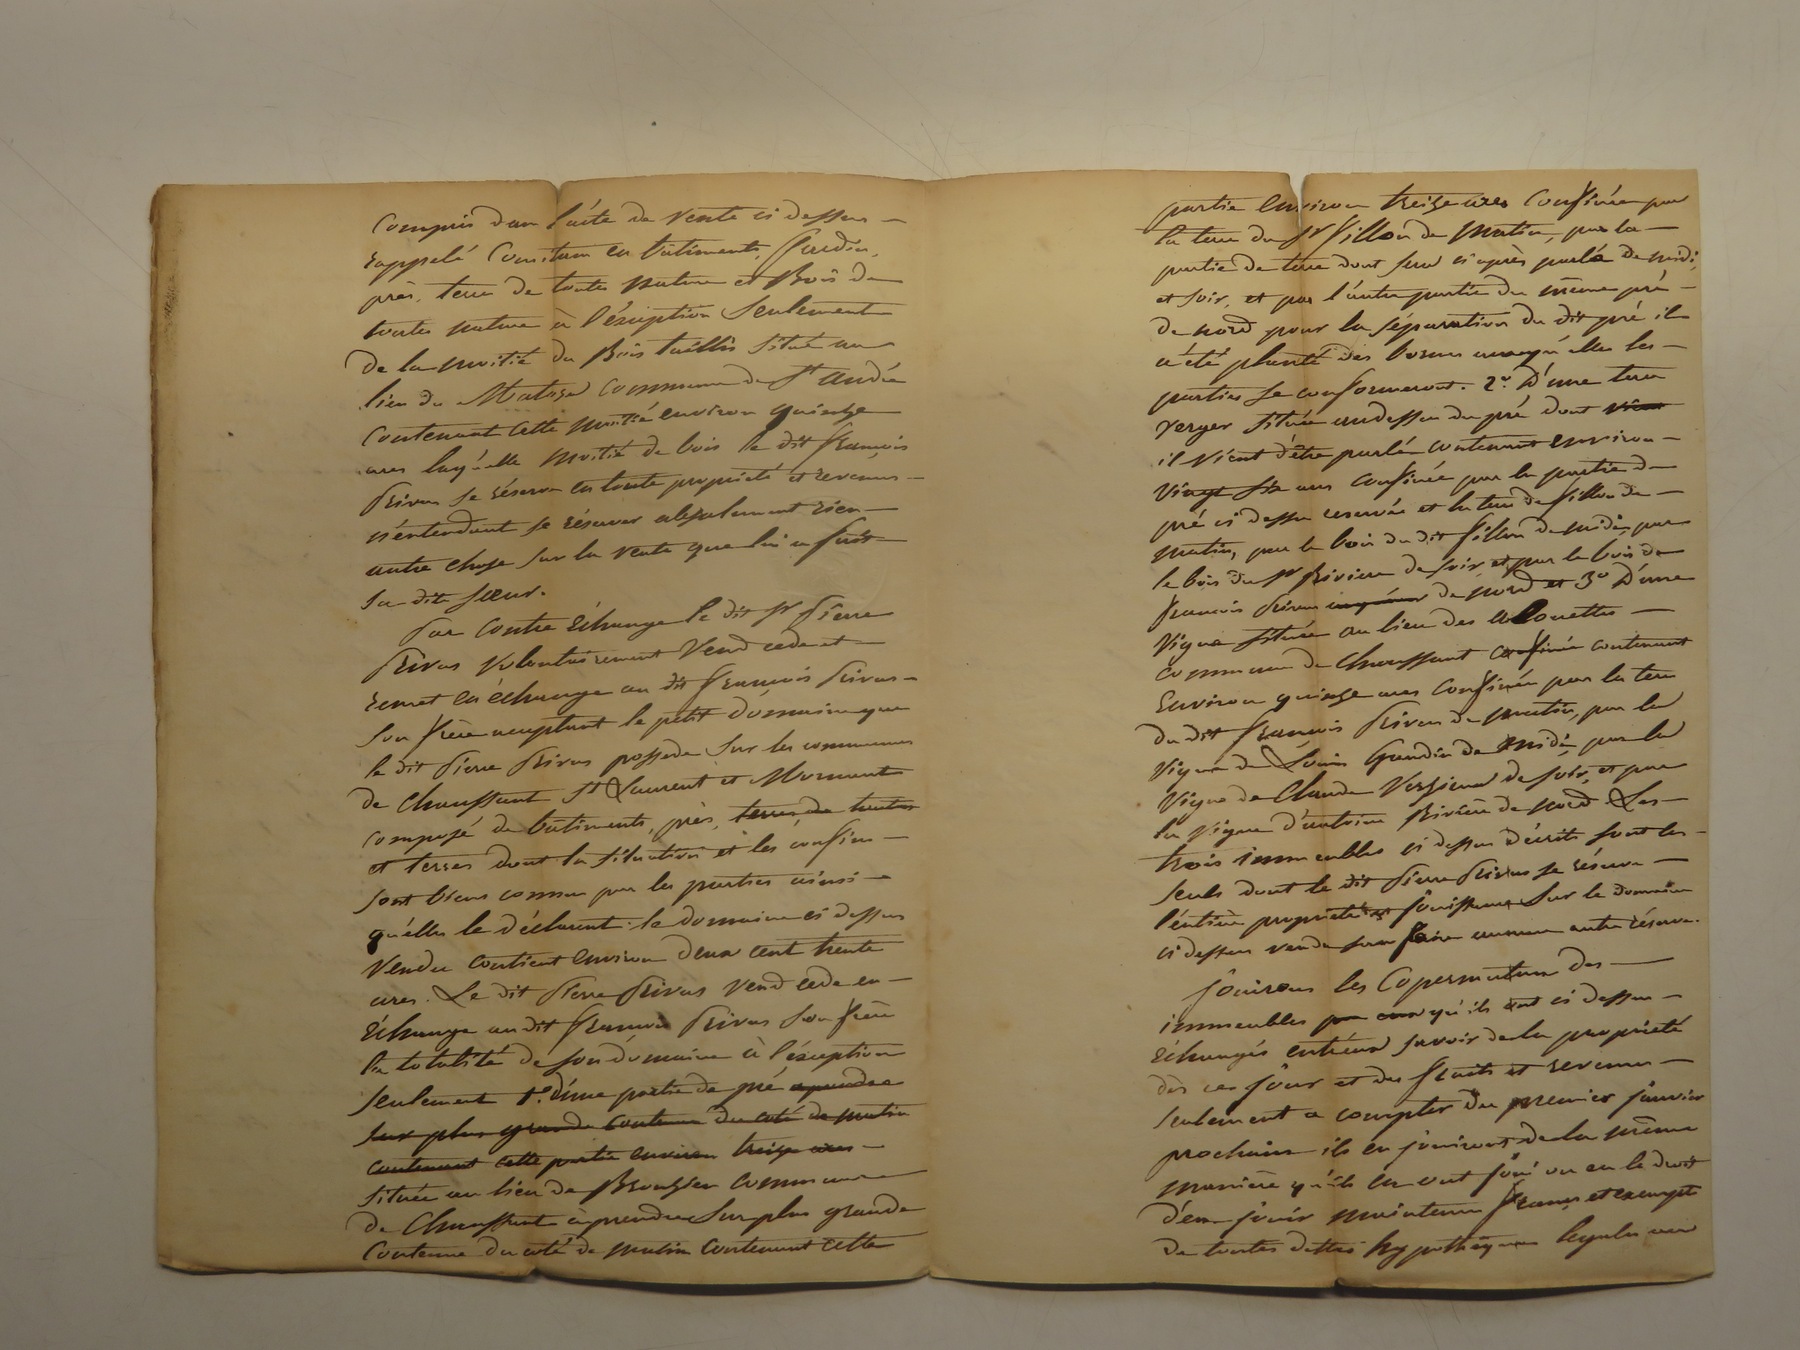 Compris dans l'acte de vente ci dessus
rappelé Consistan en bâtiments, Jardin,
près, terre de toutes nature et Bois de
toutes nature à l'éxception Seulement
de la moitié du Bois taillis Situé au
lieu du commune de St andré
Contenant cette moitié environ quinze
ares laquelle moitié de bois le dit françois
Rivas se réserve en toute propriété et revenus
n'entendant se réserver absolument rien
autre chose Sur la Vente que lui a fait
Sa dite Sœur.
Par Contre échange le dit Sr Pierre
Rivas Volontairement Vend cede et
remet en échange au dit françois Rivas
Son frère acceptant le petit Domaine que
le dit Pierre Rivas possede Sur les communes
de Chaussant St Laurent et Mornant
composé de bâtiments, près, terres de toutes
et terres dont la Situation et les confins
sont biens connus par les parties ainsi
qu'elles le déclarent. le domaine ci dessus
Vendu contient environ deux cent trente
ares. Le dit Pierre Rivas Vend cede en
échange au dit françois Rivas Son frère
la totalité de Son domaine à l'éxception
Seulement 1° d'une partie de pré aprendre
Sur plus grande Contenue du coté de matin
contenant cette partie environ treize ares
Située au lieu de commune
de Chaussant à prendre Sur plus grande
Contenue du coté de matin Contenant cette
partie environ treize ares Confinée par
la terre du Sr fillon de Matin, par la
partie de terre dont sera ci après parlé de midi,
et Soir, et par l'autre partie du même pré
de nord pour la Séparation du dit pré il
a été planté des bornes auxquelles les
parties Se conformeront. 2° D'une terre
verger Située audessus du pré dont vient
il vient d'être parlé contenant environ
Vingt Six ares confinée par la partie de
pré ci dessus reservée et la terre de fillon de
Matin, par le bois du dit fillon de midi, par
le bois du Sr Riviere de Soir et par le bois de
françois Rivas de nord et 3° D'une
Vigne Située au lieu des alouettes
commune de Chaussant Confinée contenant
Environ quinze ares Confinée par la terre
du dit françois Rivas de matin, par la
Vigne de Louis de Midi, par la
Vigne de Claude de Soir, et par
la Vigne d'antoine Rivière de nord. Les
trois immeubles ci dessus décrits sont les
Seuls dont le dit Pierre Rivas Se réserve
l'éntière propriété et Jouissance Sur le domaine
ci dessus vendu sans faire aucune autre réserve.
Jouirons les Copermutans des
immeubles qu'ils ont ci dessus
échangés Savoir de la propriété
dès ces Jour et des fruits et revenus
Seulement a compter du premier Janvier
prochain ils en Jouiront de la même
manière qu'ils en ont Joui ou eu le droit
d'en Jouir maintenu francs et exempts
de toutes dettes hypothèques legales ou